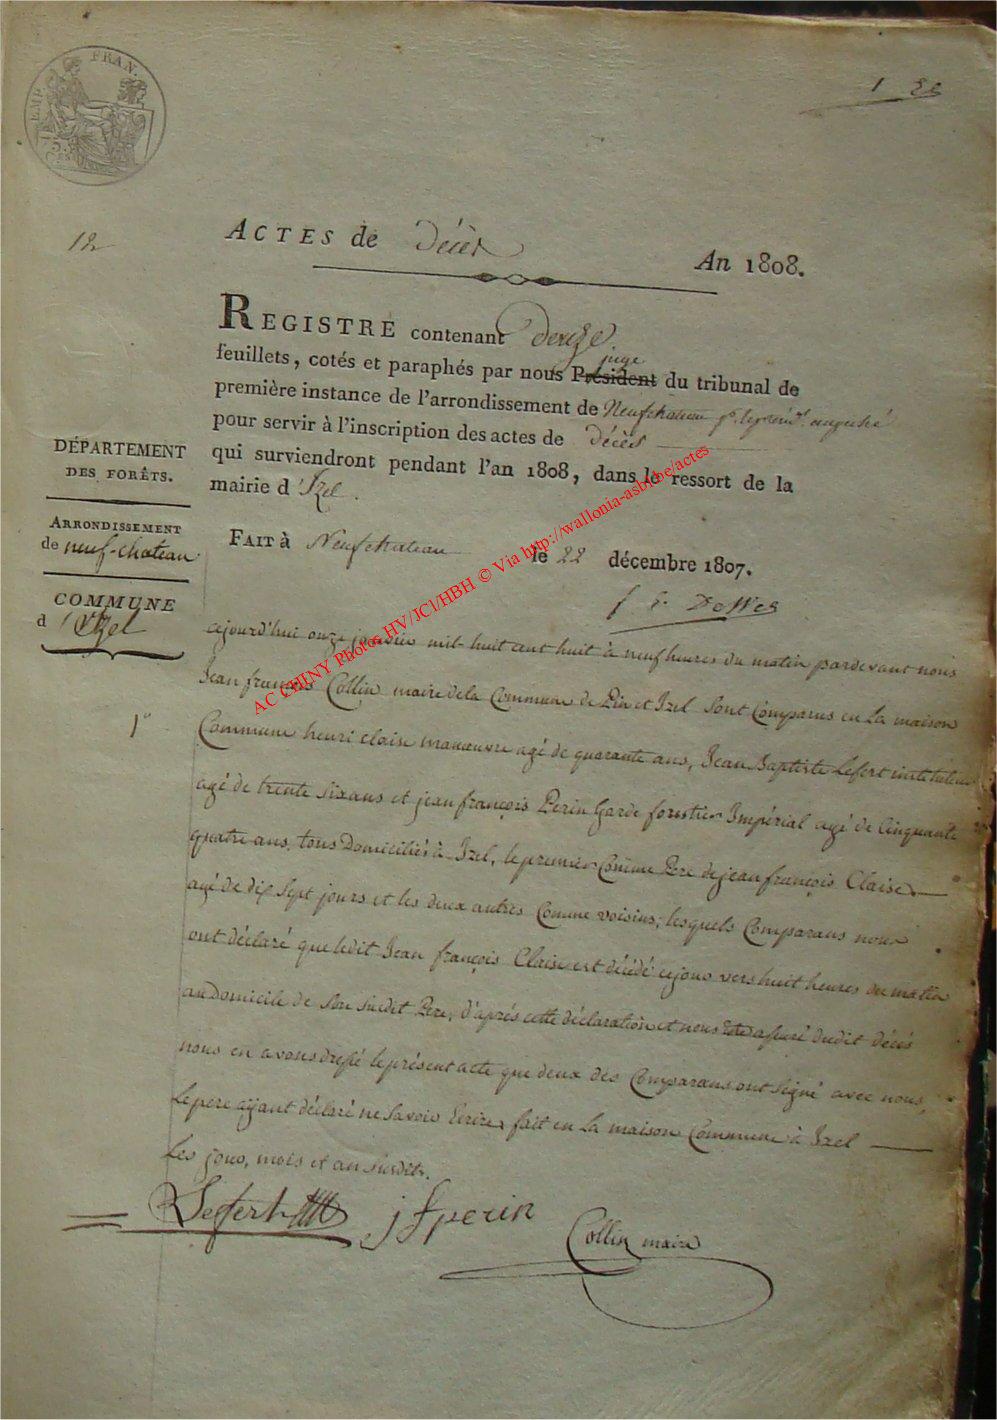 EMP. FRAN.
12
ACTES de Décès
An 1808.
REGISTRE contenant douze
feuillets, cotés et paraphés par nous Président juge du tribunal de
première instance de l'arrondissement de Neufchateau
pour servir à l'inscription des actes de Décès
qui surviendront pendant l'an 1808, dans le ressort de la
mairie d'Izel.
FAIT à Neufchateau le 22 décembre 1807.
DÉPARTEMENT
DES FORÊTS.
ARRONDISSEMENT
de neuf-chateau
COMMUNE
d'Izel
AC CHINY Photos HV/JC1/HBH © Via http://wallonia-asbl.be/actes
1º
cejourd'hui onze janvier mil-huit cent huit à neuf heures du matin pardevant nous
Jean françois Collin maire dela Commune de Pin et Izel sont Comparus en La maison
Commune henri claise manoeuvre agé de quarante ans, Jean Baptiste Lefert instituteur
agé de trente sixans et jean françois Perin Garde forestier Impérial agé de Cinquante
quatre ans, tous Domiciliés à Izel, le premier Comme Pere de jean françois Claise
agé de dix sept jours et les deux autres Comme voisins; lesquels Comparans nous
ont déclaré que ledit Jean françois Claise est décédé cejour vers huit heures du matin
au Domicile de son susdit Pere, d'après cette déclaration et nous être assuré dudit décés
nous en avons dressé le présent acte que deux des Comparans ont signé avec nous,
Le pere aÿant déclaré ne savoir Ecrire, fait en La maison Commune à Izel
Les jour, mois et an susdits.
Lefert jfperin
Collin maire